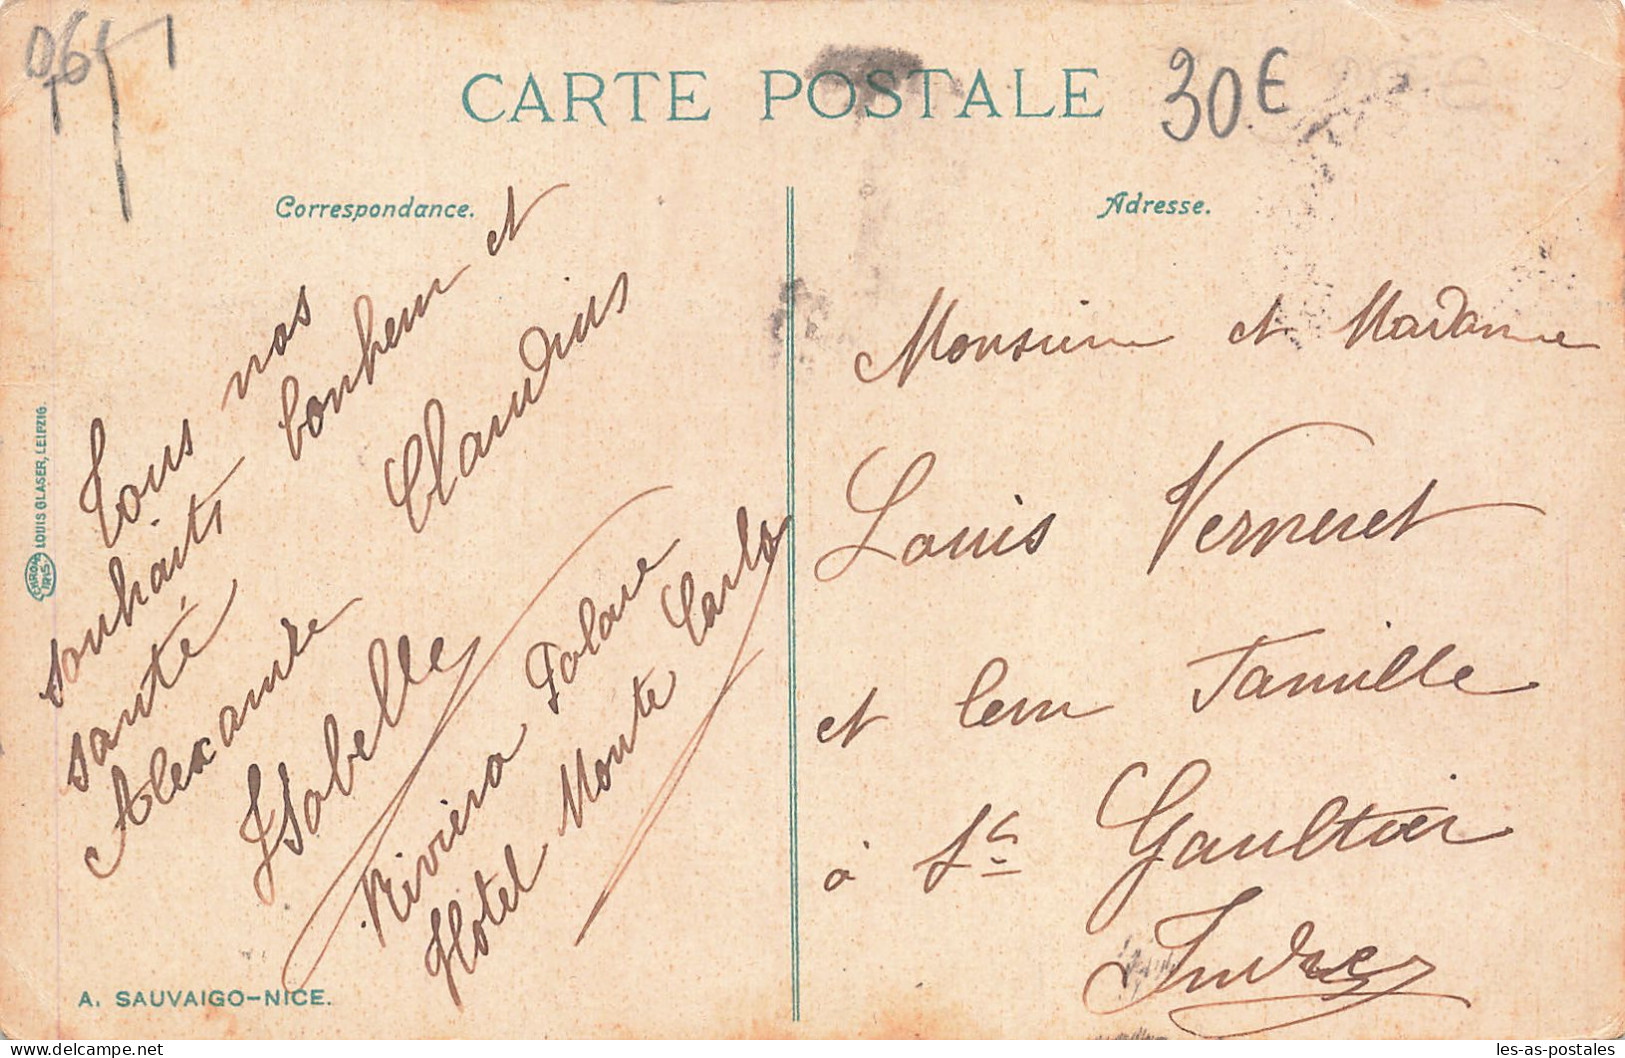 06
30€
CARTE POSTALE
Correspondance.
Adresse.
Tous nos
souhaits bonheur et
santé Claudius
Alexandre
Isabelle
Riviera Palace
Hotel Monte Carlo
Monsieur et Madame
Louis Verneret
et leur Famille
à St Gaultier
Indre
CHROMO IRIS
LOUIS GLASER, LEIPZIG.
A. SAUVAIGO-NICE.
delcampe.net
les-as-postales